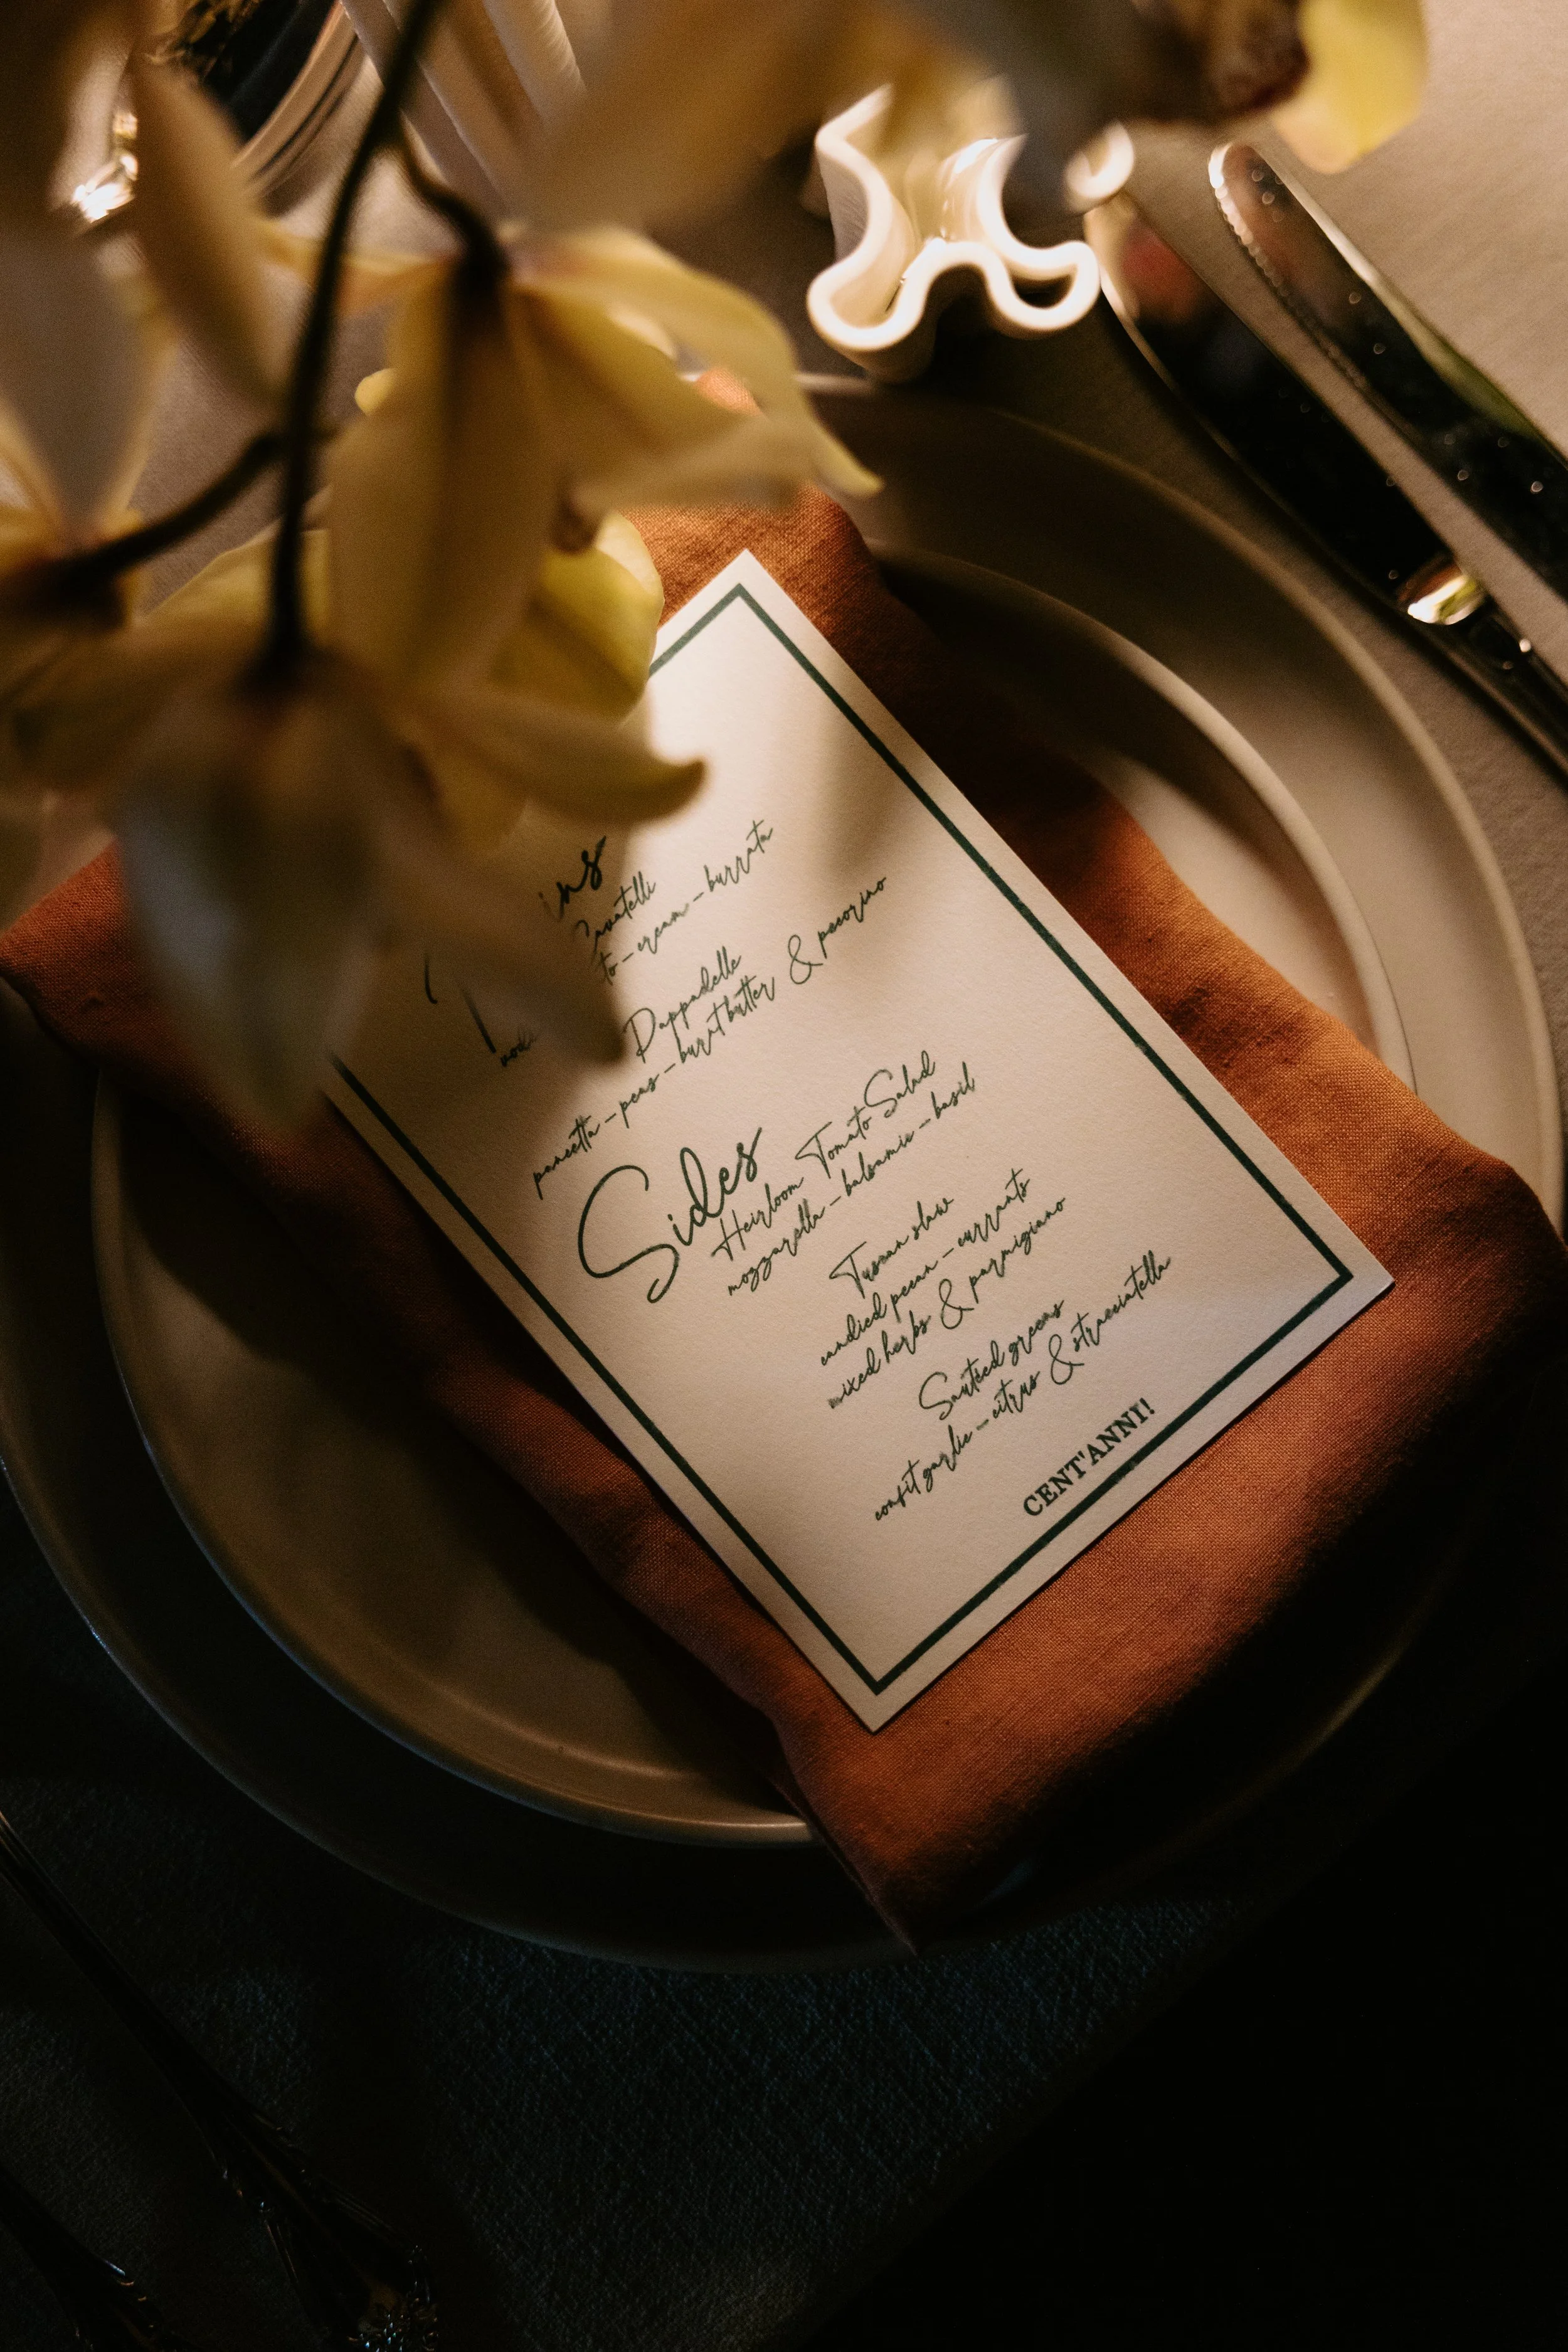 Cavatelli
cream - burrata
Pappadelle
pancetta - peas - burnt butter & pecorino
Sides
Heirloom Tomato Salad
mozzarella - balsamic - basil
Tuscan slaw
candied pecan - currants
mixed herbs & parmigiano
Sautéed greens
confit garlic - citrus & stracciatella
CENT'ANNI!